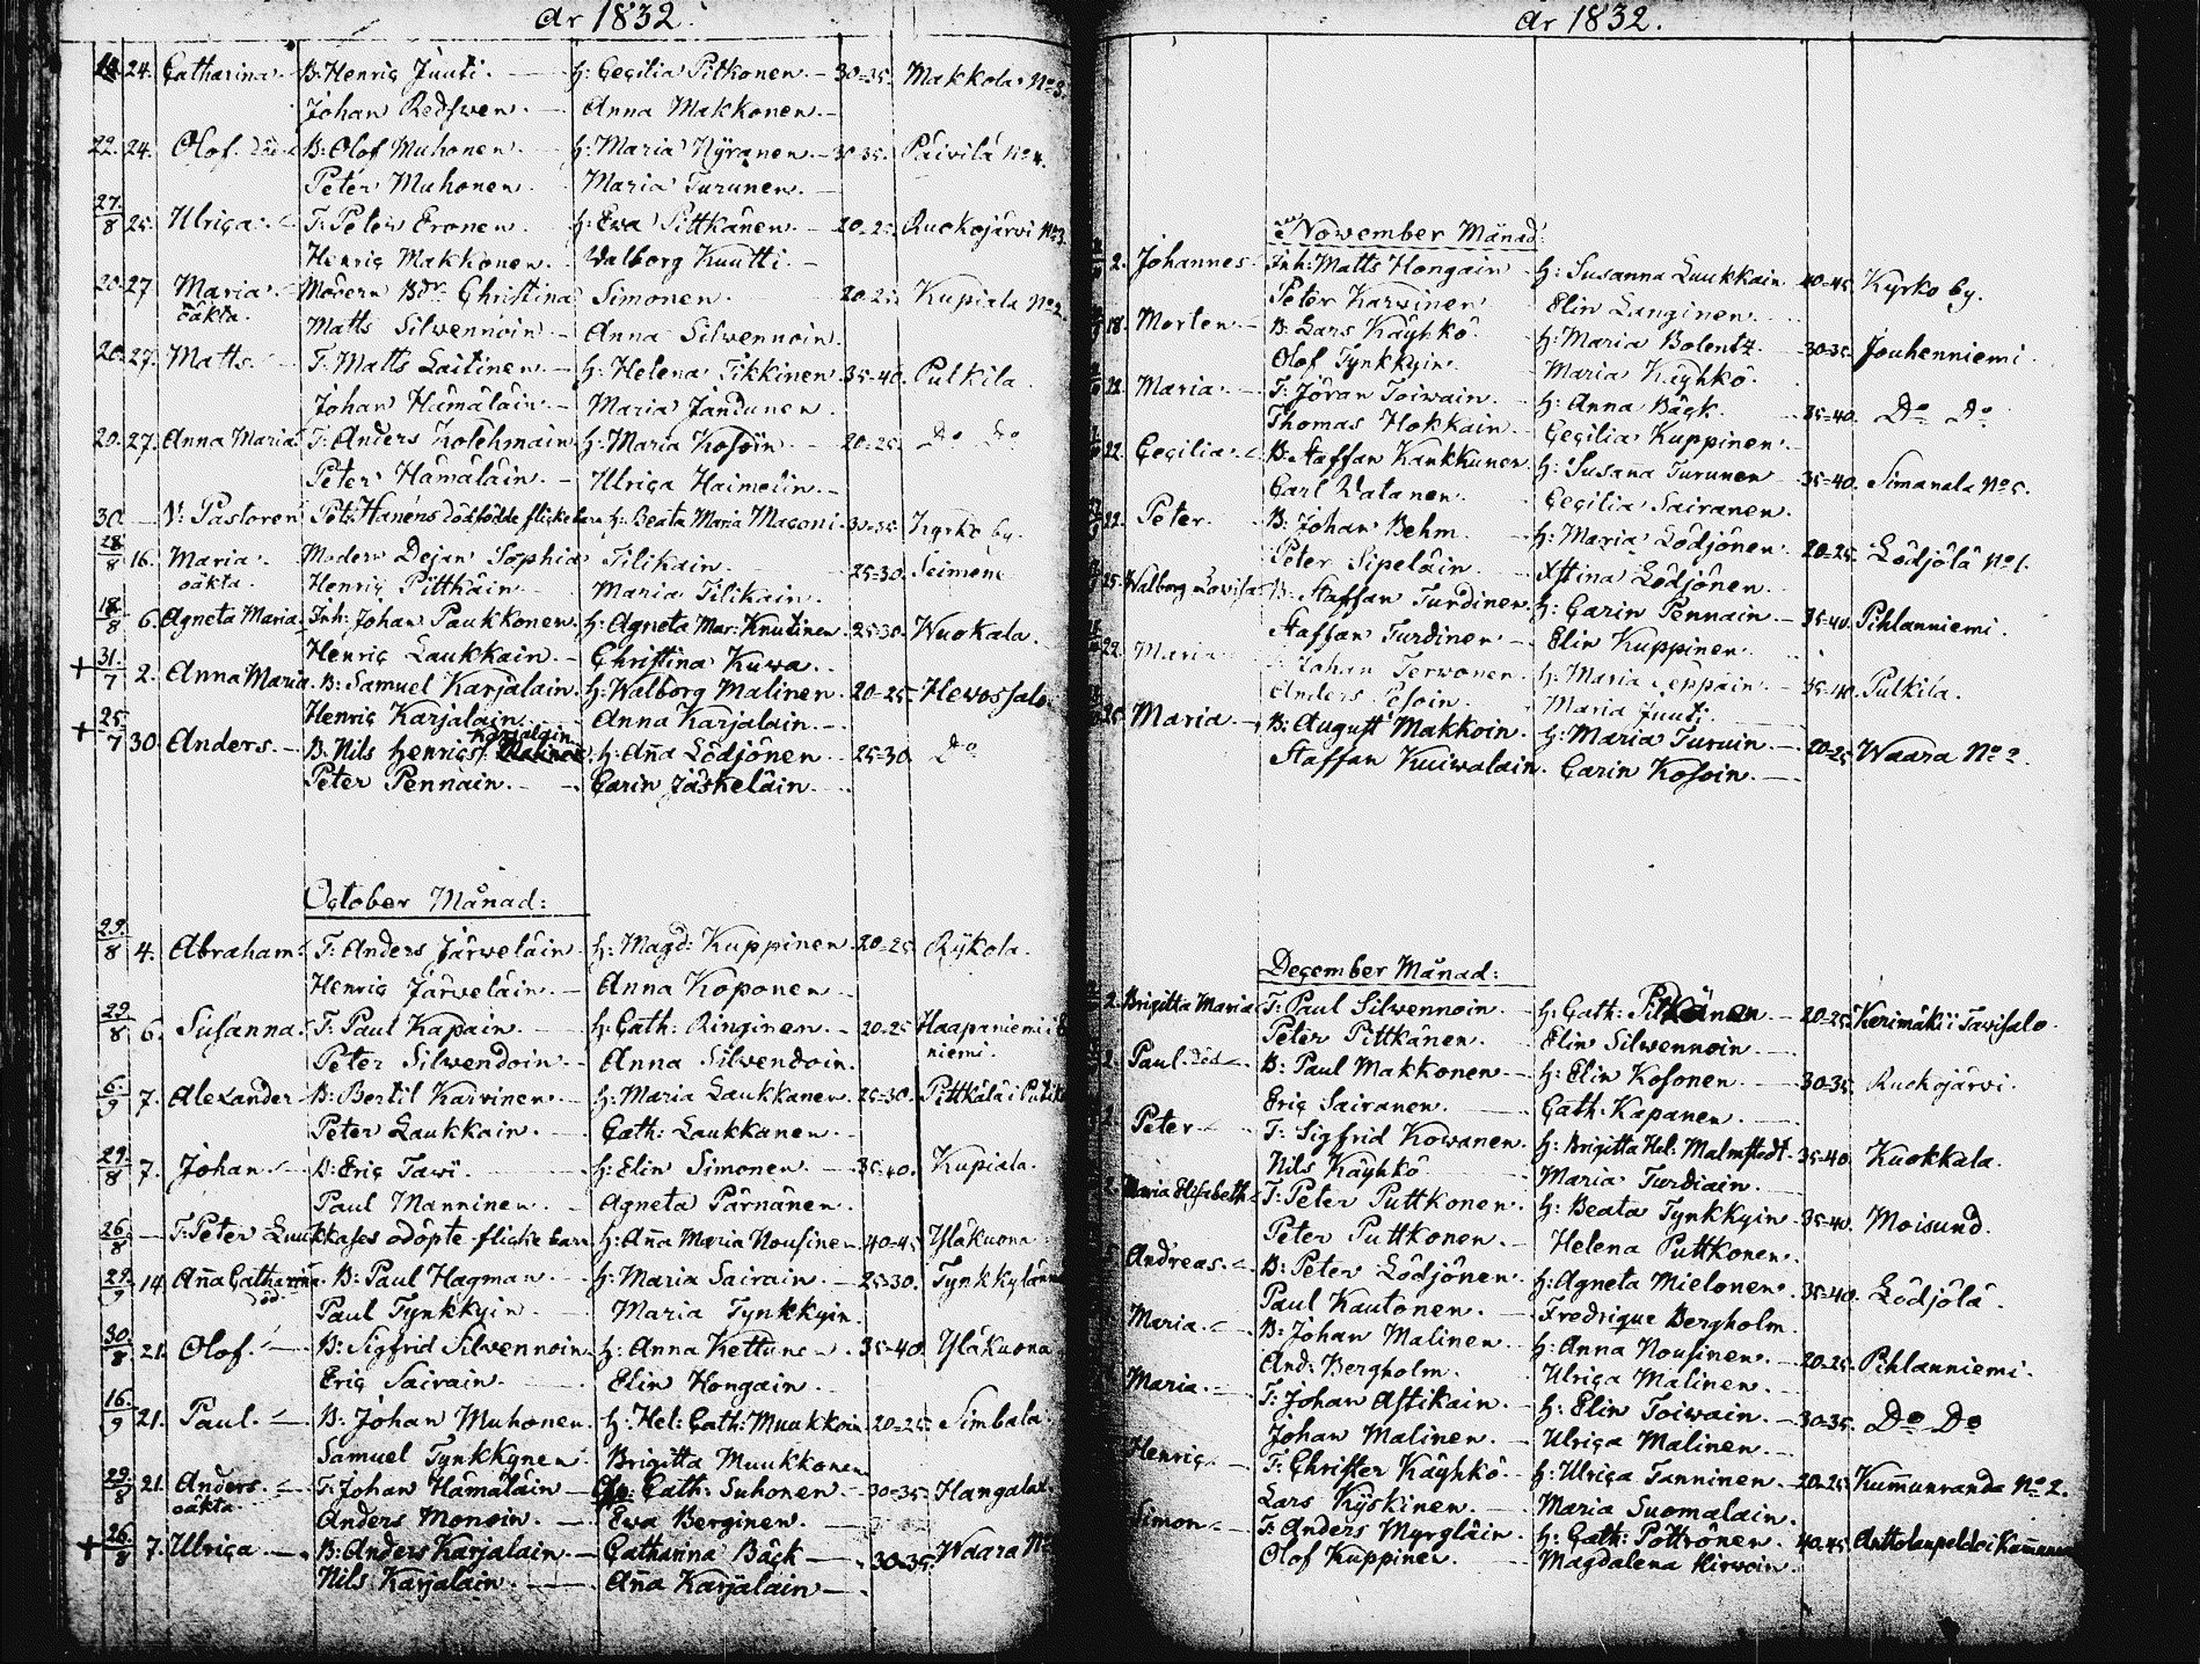 år 1832.
24. Catharina. B: Henric Juuti. H: Cecilia Pitkonen. 30-35. Makkola No 3.
Johan Redswen. Anna Makkonen.
22. 24. Olof. död. B: Olof Muhonen. H: Maria Nyränen. 30-35. Päivilä No 4.
Peter Muhonen. Maria Turunen.
27/8 25. Ulrica. T: Peter Eronen. H: Ewa Pittkänen. 20-25. Ruokojärvi No 3.
Henric Makkonen. Walborg Kuutti.
20. 27 Maria. Modern Bdr Christina Simonen. 20-25. Kupiala No 2.
oäkta. Matts Silwennoin. Anna Silwennoin.
20. 27. Matts. T: Matts Laitinen. H: Helena Tikkinen. 35-40. Pulkila.
Johan Hämäläin. Maria Jandunen.
20. 27. Anna Maria. T: Anders Kolehmain H: Maria Kosoin 20-25. Do Do
Peter Hämäläin. Ulrica Haimelin.
30. V: Pastoren Pet: Hanéns dödfödde flickebarn H: Beata Maria Maconi. 30-35. Kyrko by.
28/8 16. Maria. Modern Dejan Sophia Tilikain. 25-30. Seimene
oäkta. Henric Pittkäin. Maria Tilikain.
18/8 6. Agneta Maria. Inh: Johan Paukkonen. H: Agneta Mar: Knutinen. 25-30. Wuokala.
Henric Laukkain. Christina Kuwa.
+ 31/7 2. Anna Maria. B: Samuel Karjalain. H: Walborg Malinen. 20-25. Hevossalo.
Henric Karjalain. Anna Karjalain.
Karjalain
+ 25/7 30. Anders. B. Nils Henrics. H: Anna Lödjönen. 25-30. Do
Peter Pennain. Carin Jäskeläin.
October Månad:
29/8 4. Abraham. T: Anders Järweläin. H: Magd: Kuppinen. 20-25. Rykola.
Henric Järweläin. Anna Koponen.
29/8 6. Susanna. T: Paul Kapain. H: Cath: Ringinen. 20-25 Haapaniemi i
Peter Silwendoin. Anna Silwendoin. niemi.
6/9 7. Alexander B: Bertil Karvinen. H: Maria Laukkanen. 25-30. Pittkälä i
Peter Laukkain. Cath: Laukkanen.
29/8 7. Johan. B: Eric Tawi. H: Elin Simonen. 35-40. Kupiala.
Paul Manninen. Agneta Pärnänen.
26/8 T: Peter Luukkases odöpte flicke barn H: Anna Maria Nousinen. 40-45 Yläkuona
29/9 14. Anna Catharina. B: Paul Hagman. H: Maria Sairain. 25-30.
död. Paul Tynkkyin. Maria Tynkkyin.
30/8 21. Olof. B: Sigfrid Silwennoin H: Anna Kettunen. 35-40. Yläkuona
Eric Sairain. Elin Hongain.
16/9 21. Paul. B: Johan Muhonen. H: Hel: Cath: Muukkoin 20-25. Simbala.
Samuel Tynkkynen. Brigitta Muukkonen
29/8 21. Anders. T: Johan Hämäläin Cath: Suhonen. 30-35. Hangalax.
oäkta. Anders Monoin. Ewa Berginen.
+ 26/8 7. Ulrica B: Anders Karjalain. Catharina Bäck 30-35. Waara No
Nils Karjalain. Anna Karjalain
år 1832.
November Månad:
2. Johannes. Inh: Matts Hongain H: Susanna Luukkain 40-45. Kyrko by.
Peter Karvinen Elin Langinen.
18. Morten. B: Lars Käyhkö. H: Maria Bolentz. 30-35. Jouhenniemi.
Olof Tynkkyin. Maria Käyhkö.
Maria. T: Jöran Toiwain. H: Anna Bäck. 35-40. Do Do
Thomas Hokkain. Cecilia Kuppinen.
22. Cecilia. B: Staffan Kankkunen. H: Susana Turunen 35-40. Simanala No 5.
Carl Watanen. Cecilia Sairanen.
22. Peter. B: Johan Behm. H: Maria Lödjönen. 20-25. Lödjölä No 1.
Peter Sipeläin. Xstina Lödjönen.
25. Walborg Lovisa. B: Staffan Turdinen. H: Carin Pennain. 35-40. Pihlanniemi.
Staffan Turdinen Elin Kuppinen.
22. Maria Johan Terwonen. H: Maria Leppäin. 35-40. Pulkila.
Anders Maria Juuti.
25. Maria. B: August Makkoin. H: Maria Turuin. 20-25 Waara No 2.
Staffan Kuiwalain. Carin Kosoin.
December Månad:
2. Brigitta Maria T: Paul Silwennoin. H: Cath: Pitkänen. 20-25. Kerimäki i Tawisalo.
Peter Pittkänen. Elin Silwennoin.
2. Paul. död B: Paul Makkonen H: Elin Kosonen. 30-35. Ruokojärvi.
Eric Sairanen. Cath: Kapanen.
2. Peter T: Sigfrid Kowanen. H: Brigitta Hel: Malmstedt. 35-40 Kuokkala.
Nils Käyhkö Maria Turdiain.
2. Maria Elisabeth T: Peter Puttkonen. H: Beata Tynkkyin. 35-40. Moisund.
Peter Puttkonen. Helena Puttkonen.
Andreas. B: Peter Lödjönen. H: Agneta Mielonen. 35-40. Lödjölä.
Paul Kautonen. Fredrique Bergholm.
Maria. B: Johan Malinen. H: Anna Nousinen. 20-25. Pihlanniemi.
And: Bergholm. Ulrica Malinen.
Maria. T: Johan Astikain. H: Elin Toiwain. 30-35. Do Do
Johan Malinen. Ulrica Malinen.
Henric. T: Christer Käyhkö. H: Ulrica Tanninen 20-25 Kummunranda No 2.
Lars Kyskinen. Maria Suomalain.
Simon T: Anders Myrgläin. H: Cath: Pottrönen. 40-45.
Olof Kuppinen. Magdalena Hirwoin.